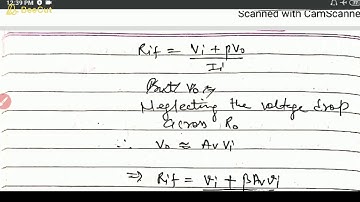 12:39 PM
Scanned with CamScanne
Rif = Vi + βVo
Ii
But Vo
Neglecting the voltage drop
across Ro
∴ Vo ≈ Av Vi
⇒ Rif = Vi + βAvVi